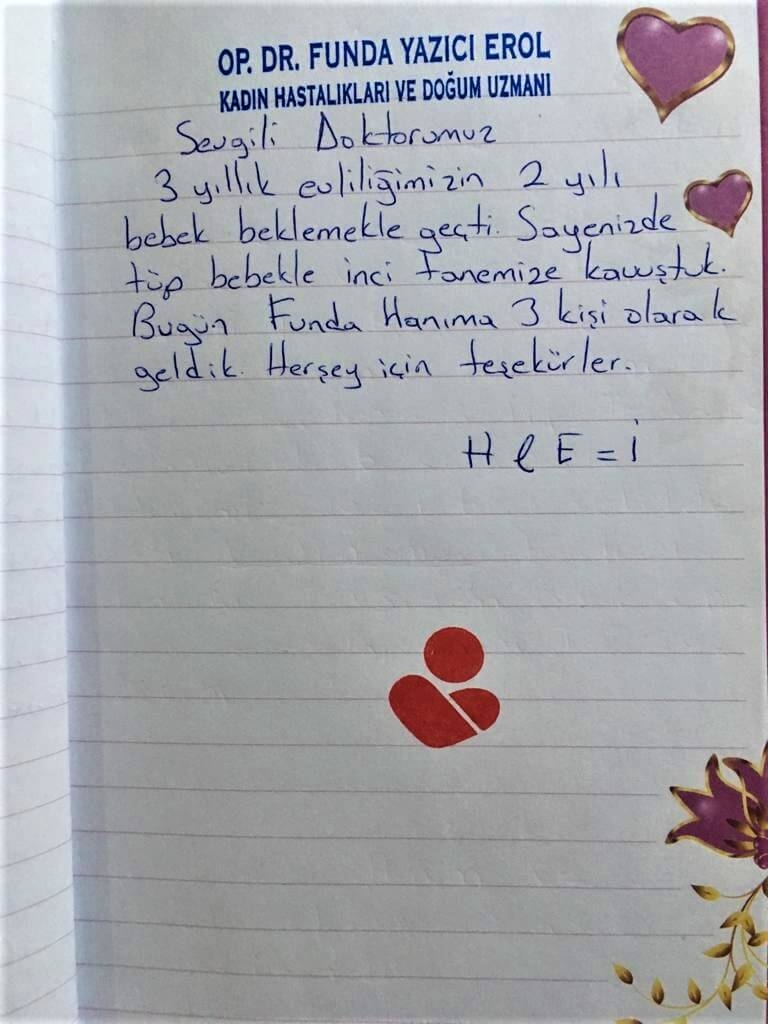 OP. DR. FUNDA YAZICI EROL
KADIN HASTALIKLARI VE DOĞUM UZMANI
Sevgili Doktorumuz
3 yıllık evliliğimizin 2 yılı
bebek beklemekle geçti. Sayenizde
tüp bebekle inci tanemize kavuştuk.
Bugün Funda Hanıma 3 kişi olarak
geldik. Herşey için teşekürler.
H ℓ E = İ